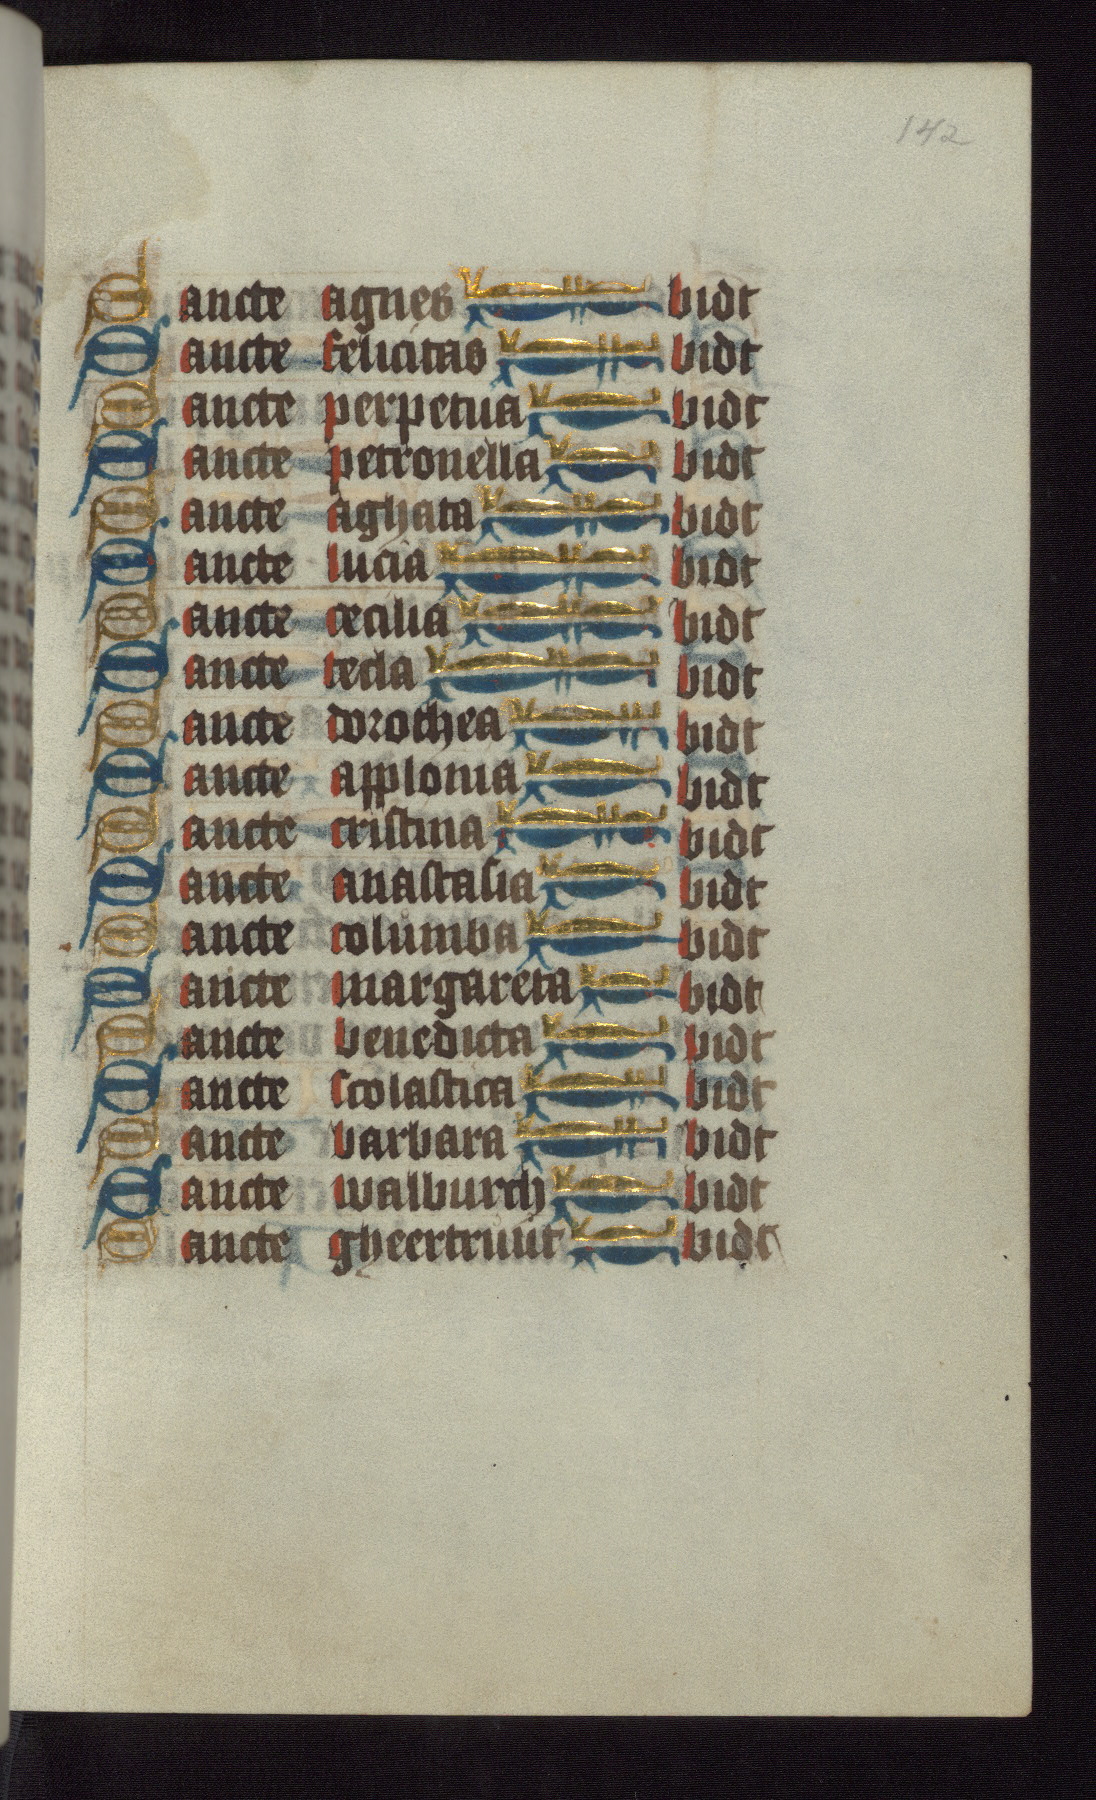 142
Sancte agnes bidt
Sancte felicitas bidt
Sancte perpetua bidt
Sancte petronella bidt
Sancte aghata bidt
Sancte lucia bidt
Sancte cecilia bidt
Sancte tecla bidt
Sancte dorothea bidt
Sancte applonia bidt
Sancte cristina bidt
Sancte anastasia bidt
Sancte columba bidt
Sancte margareta bidt
Sancte benedicta bidt
Sancte scolastica bidt
Sancte barbara bidt
Sancte walburch bidt
Sancte gheertruut bidt